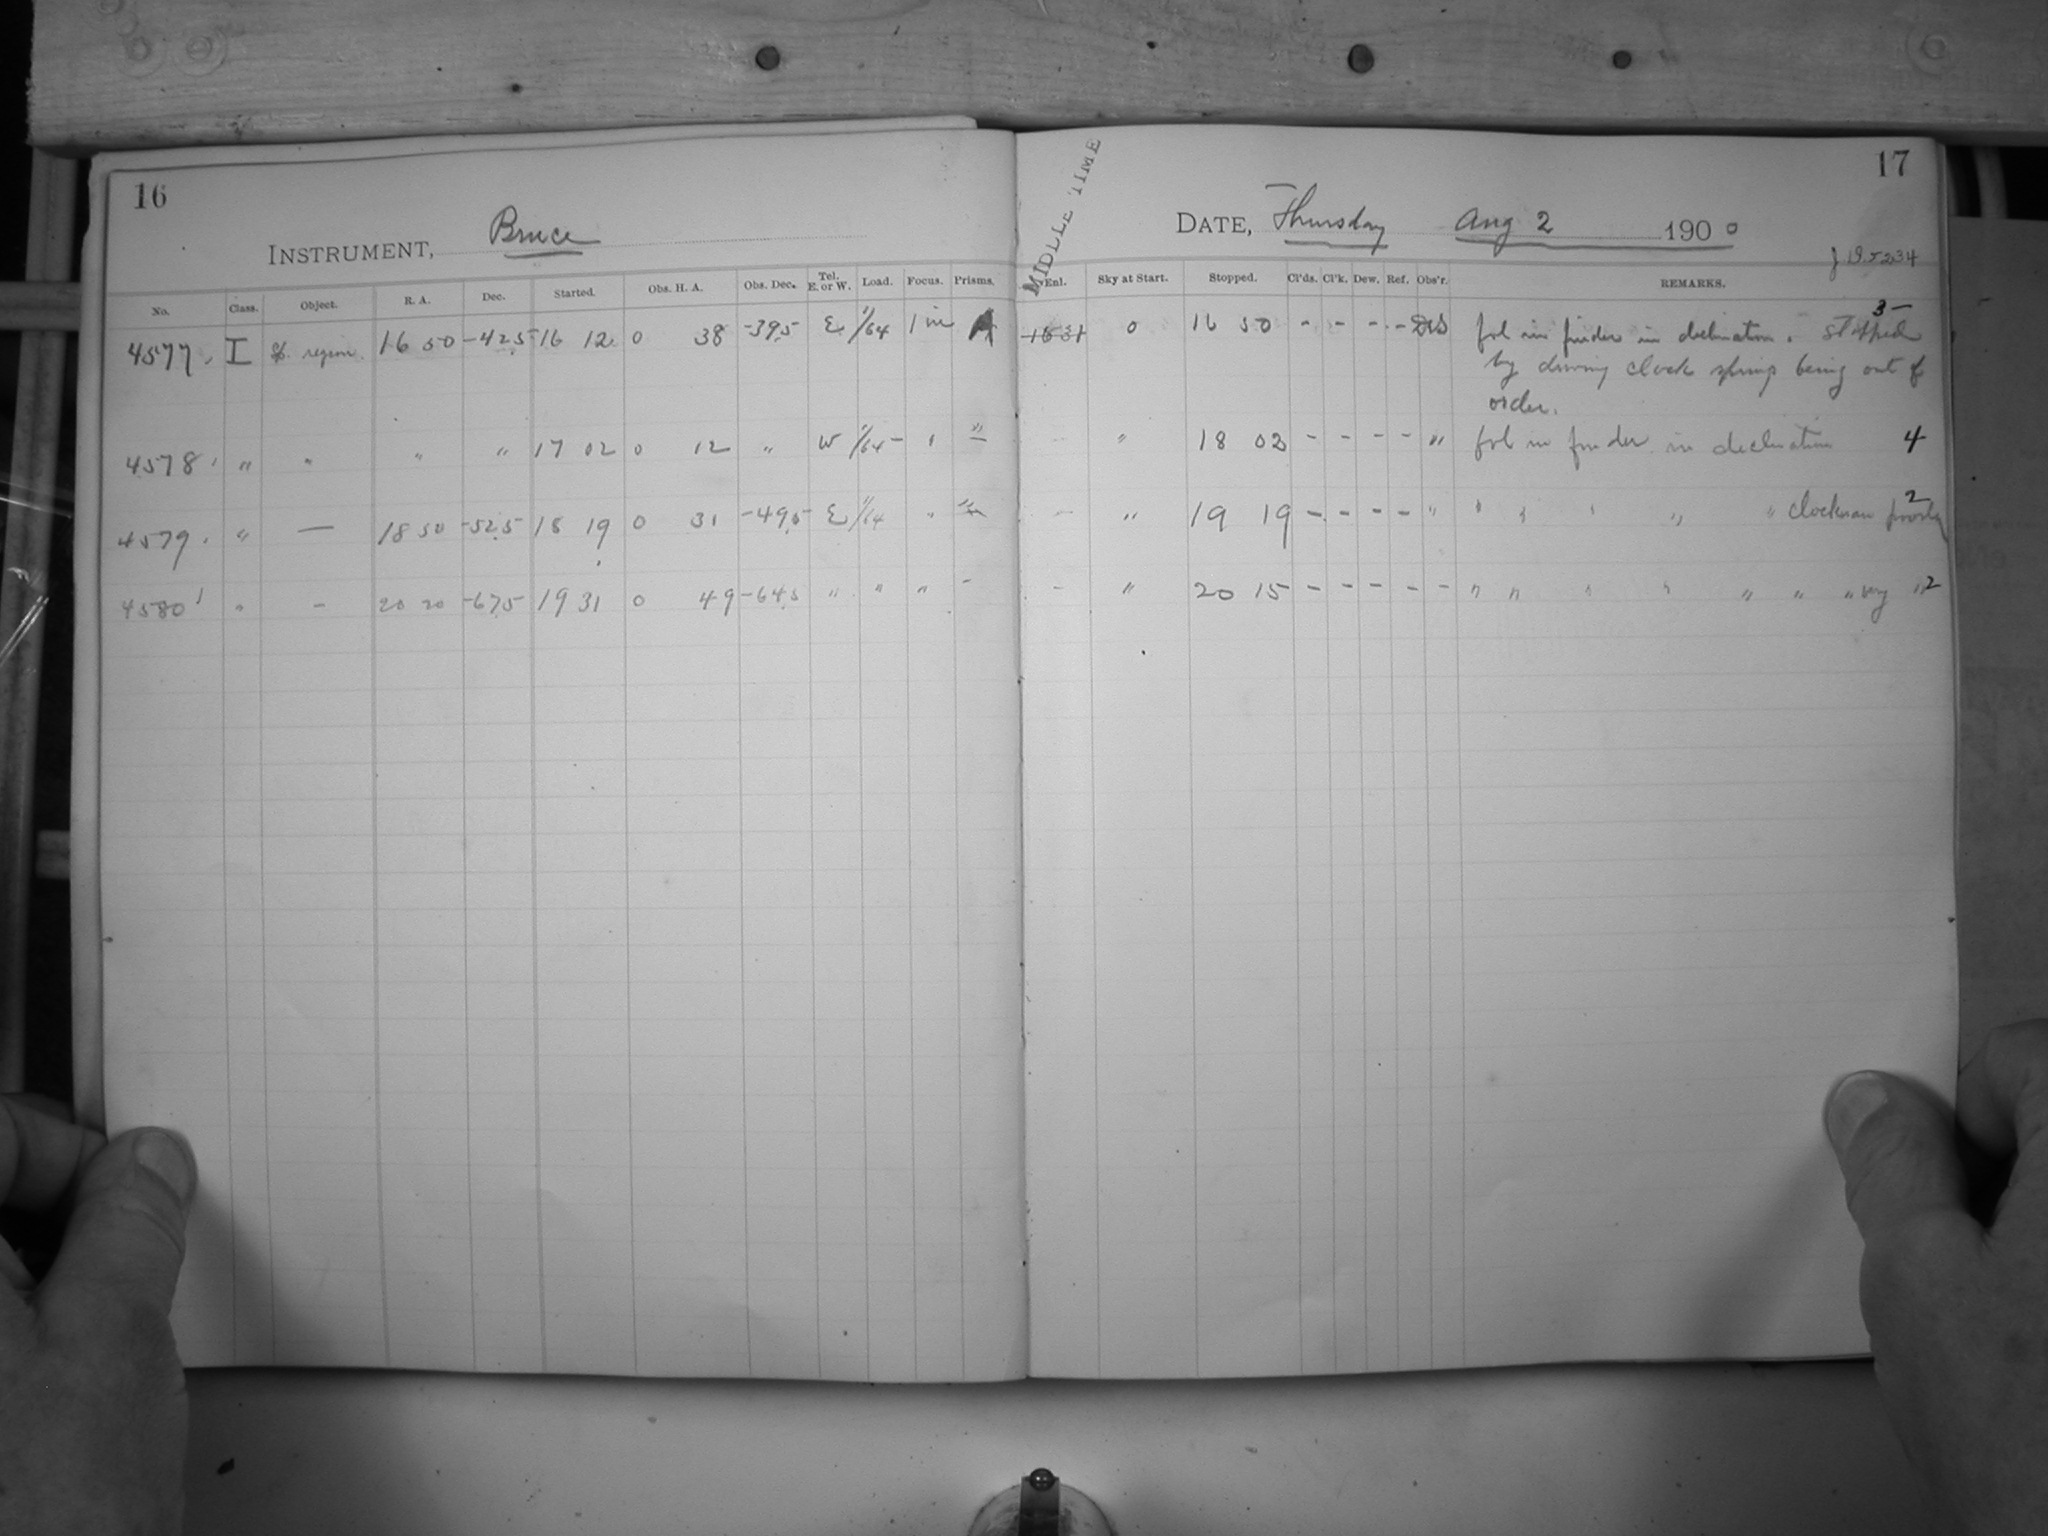 16
INSTRUMENT, Bruce
No. Class. Object. R. A. Dec. Started. Obs. H. A. Obs. Dec. Tel. E. or W. Load. Focus. Prisms.
4577 I region 16 50 -42.5 16 12 0 38 -39.5 E 1/64 1 in
4578 " " " " 17 02 0 12 " W 1/64 - " "
4579 " — 18 50 -52.5 18 19 0 31 -49.5 E 1/64 "
4580 " - 20 20 -67.5 19 31 0 49 -64.5 " " " -
17
MIDDLE TIME
DATE, Thursday Aug 2 1900
J 195234
Enl. Sky at Start. Stopped. Cl'ds. Cl'k. Dew. Ref. Obs'r. REMARKS.
1631 0 16 50 - - - - fol in finder in declination. Stopped 3-
by driving clock spring being out of
order.
- " 18 02 - - - - " fol in finder in declination 4
- " 19 19 - - - - " " " " " " clock ran poorly 2
- " 20 15 - - - - - " " " " " " " very " 2